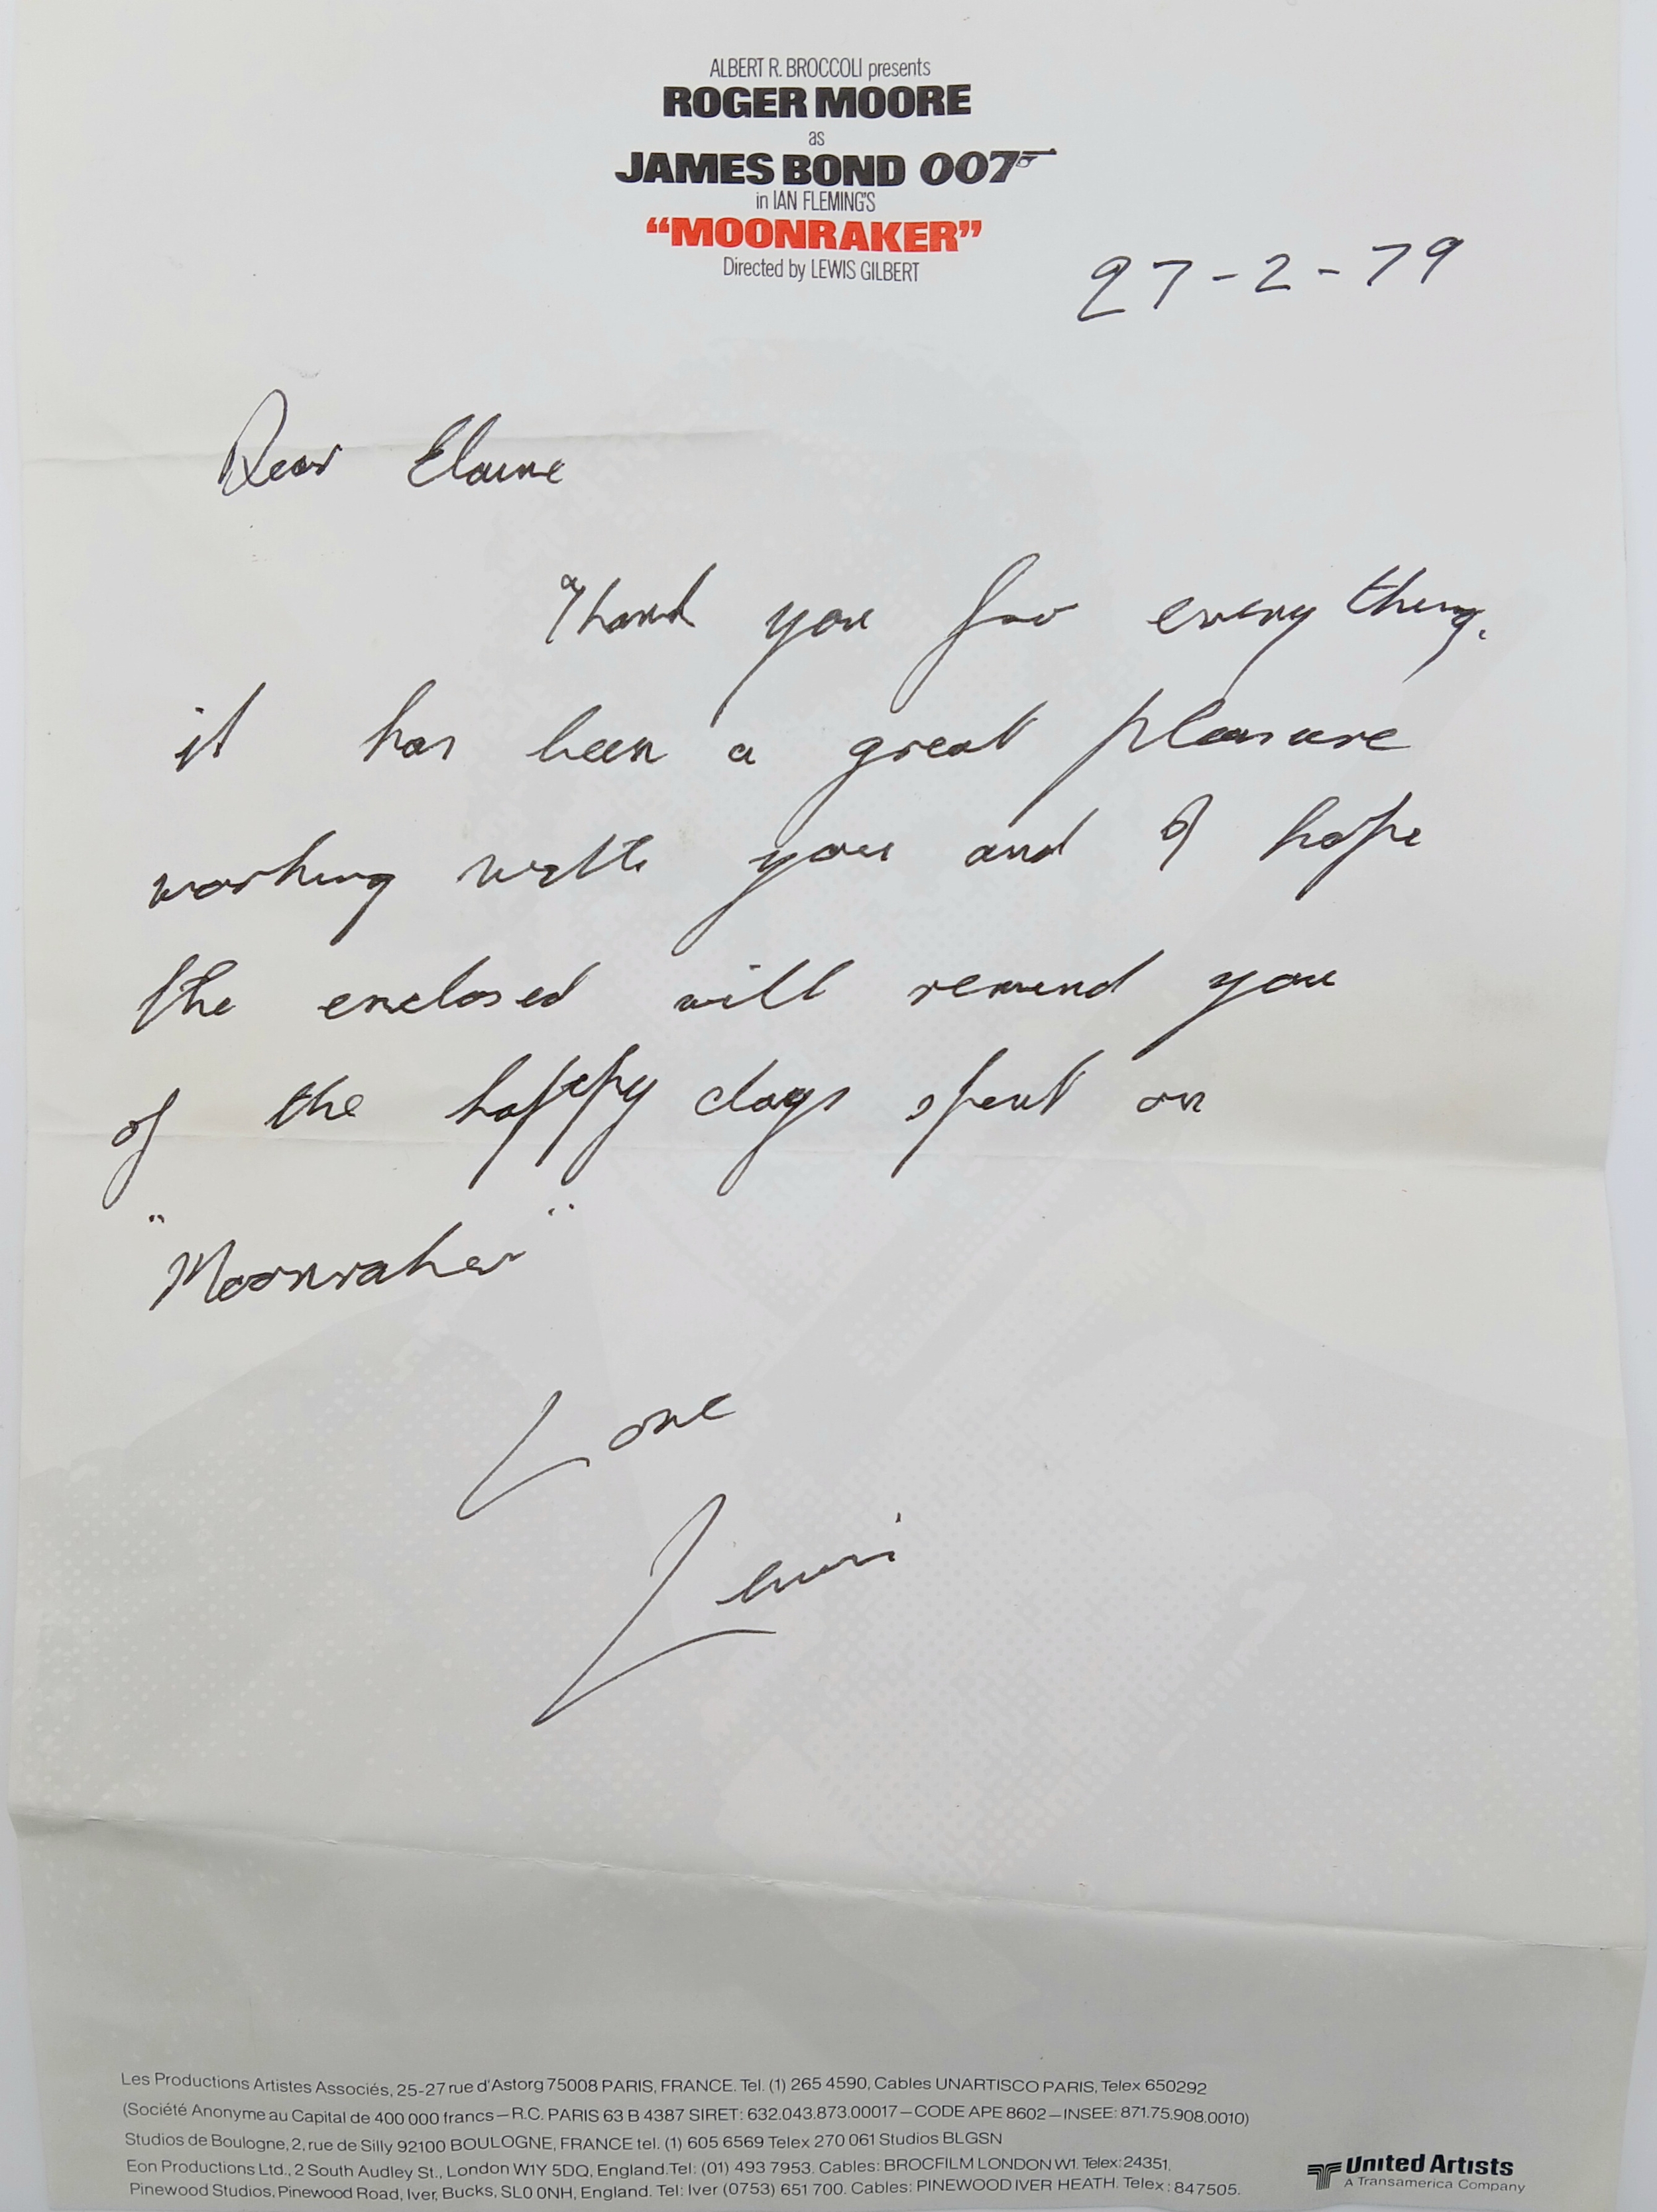 ALBERT R. BROCCOLI presents
ROGER MOORE
as
JAMES BOND 007
in IAN FLEMING'S
"MOONRAKER"
Directed by LEWIS GILBERT
27-2-79
Dear Elaine
Thank you for everything.
it has been a great pleasure
working with you and I hope
the enclosed will remind you
of the happy days spent on
"Moonraker"
Love
Lewis
Les Productions Artistes Associés, 25-27 rue d'Astorg 75008 PARIS, FRANCE. Tel. (1) 265 4590, Cables UNARTISCO PARIS, Telex 650292
(Société Anonyme au Capital de 400 000 francs—R.C. PARIS 63 B 4387 SIRET: 632.043.873.00017—CODE APE 8602—INSEE: 871.75.908.0010)
Studios de Boulogne, 2, rue de Silly 92100 BOULOGNE, FRANCE tel. (1) 605 6569 Telex 270 061 Studios BLGSN
Eon Productions Ltd., 2 South Audley St., London W1Y 5DQ, England. Tel: (01) 493 7953. Cables: BROCFILM LONDON W1. Telex: 24351.
Pinewood Studios, Pinewood Road, Iver, Bucks, SL0 0NH, England. Tel: Iver (0753) 651 700. Cables: PINEWOOD IVER HEATH. Telex: 847505.
United Artists
A Transamerica Company